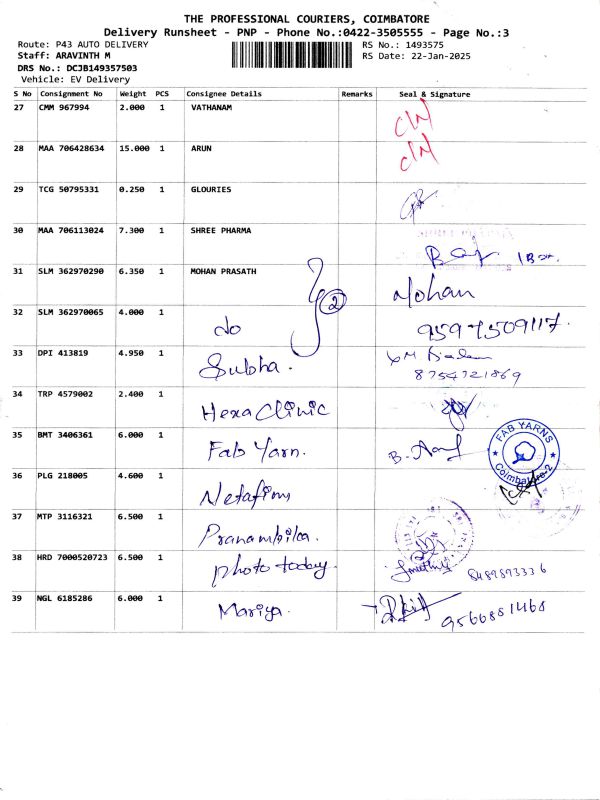 THE PROFESSIONAL COURIERS, COIMBATORE
Delivery Runsheet - PNP - Phone No.:0422-3505555 - Page No.:3
Route: P43 AUTO DELIVERY RS No.: 1493575
Staff: ARAVINTH M RS Date: 22-Jan-2025
DRS No.: DCJB149357503
Vehicle: EV Delivery
S No Consignment No Weight PCS Consignee Details Remarks Seal & Signature
27 CMM 967994 2.000 1 VATHANAM
28 MAA 706428634 15.000 1 ARUN
29 TCG 50795331 0.250 1 GLOURIES
30 MAA 706113024 7.300 1 SHREE PHARMA
31 SLM 362970290 6.350 1 MOHAN PRASATH Mohan
2
32 SLM 362970065 4.000 1 do 9597509117.
33 DPI 413819 4.950 1 Subha. 8754721869
34 TRP 4579002 2.400 1 Hexa Clinic
35 BMT 3406361 6.000 1 Fab Yarn. FAB YARNS Coimbatore-2
36 PLG 218005 4.600 1 Netafim
37 MTP 3116321 6.500 1 Pranambika
38 HRD 7000520723 6.500 1 photo today 8489893336
39 NGL 6185286 6.000 1 Mariya. 9566881468